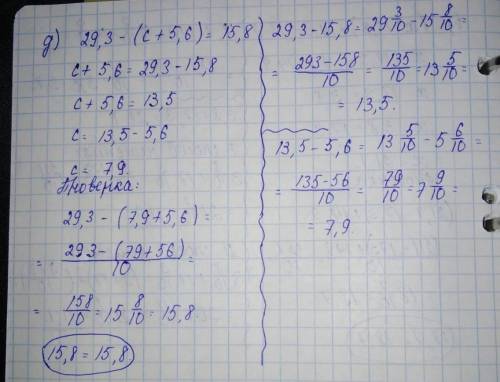 д) 29,3 - (c + 5,6) = 15,8
c + 5,6 = 29,3 - 15,8
c + 5,6 = 13,5
c = 13,5 - 5,6
c = 7,9.
Проверка:
29,3 - (7,9 + 5,6) =
= \frac{293 - (79 + 56)}{10} =
= \frac{158}{10} = 15 \frac{8}{10} = 15,8.
15,8 = 15,8
29,3 - 15,8 = 29 \frac{3}{10} - 15 \frac{8}{10} =
= \frac{293 - 158}{10} = \frac{135}{10} = 13 \frac{5}{10} =
= 13,5.
13,5 - 5,6 = 13 \frac{5}{10} - 5 \frac{6}{10} =
= \frac{135 - 56}{10} = \frac{79}{10} = 7 \frac{9}{10} =
= 7,9.